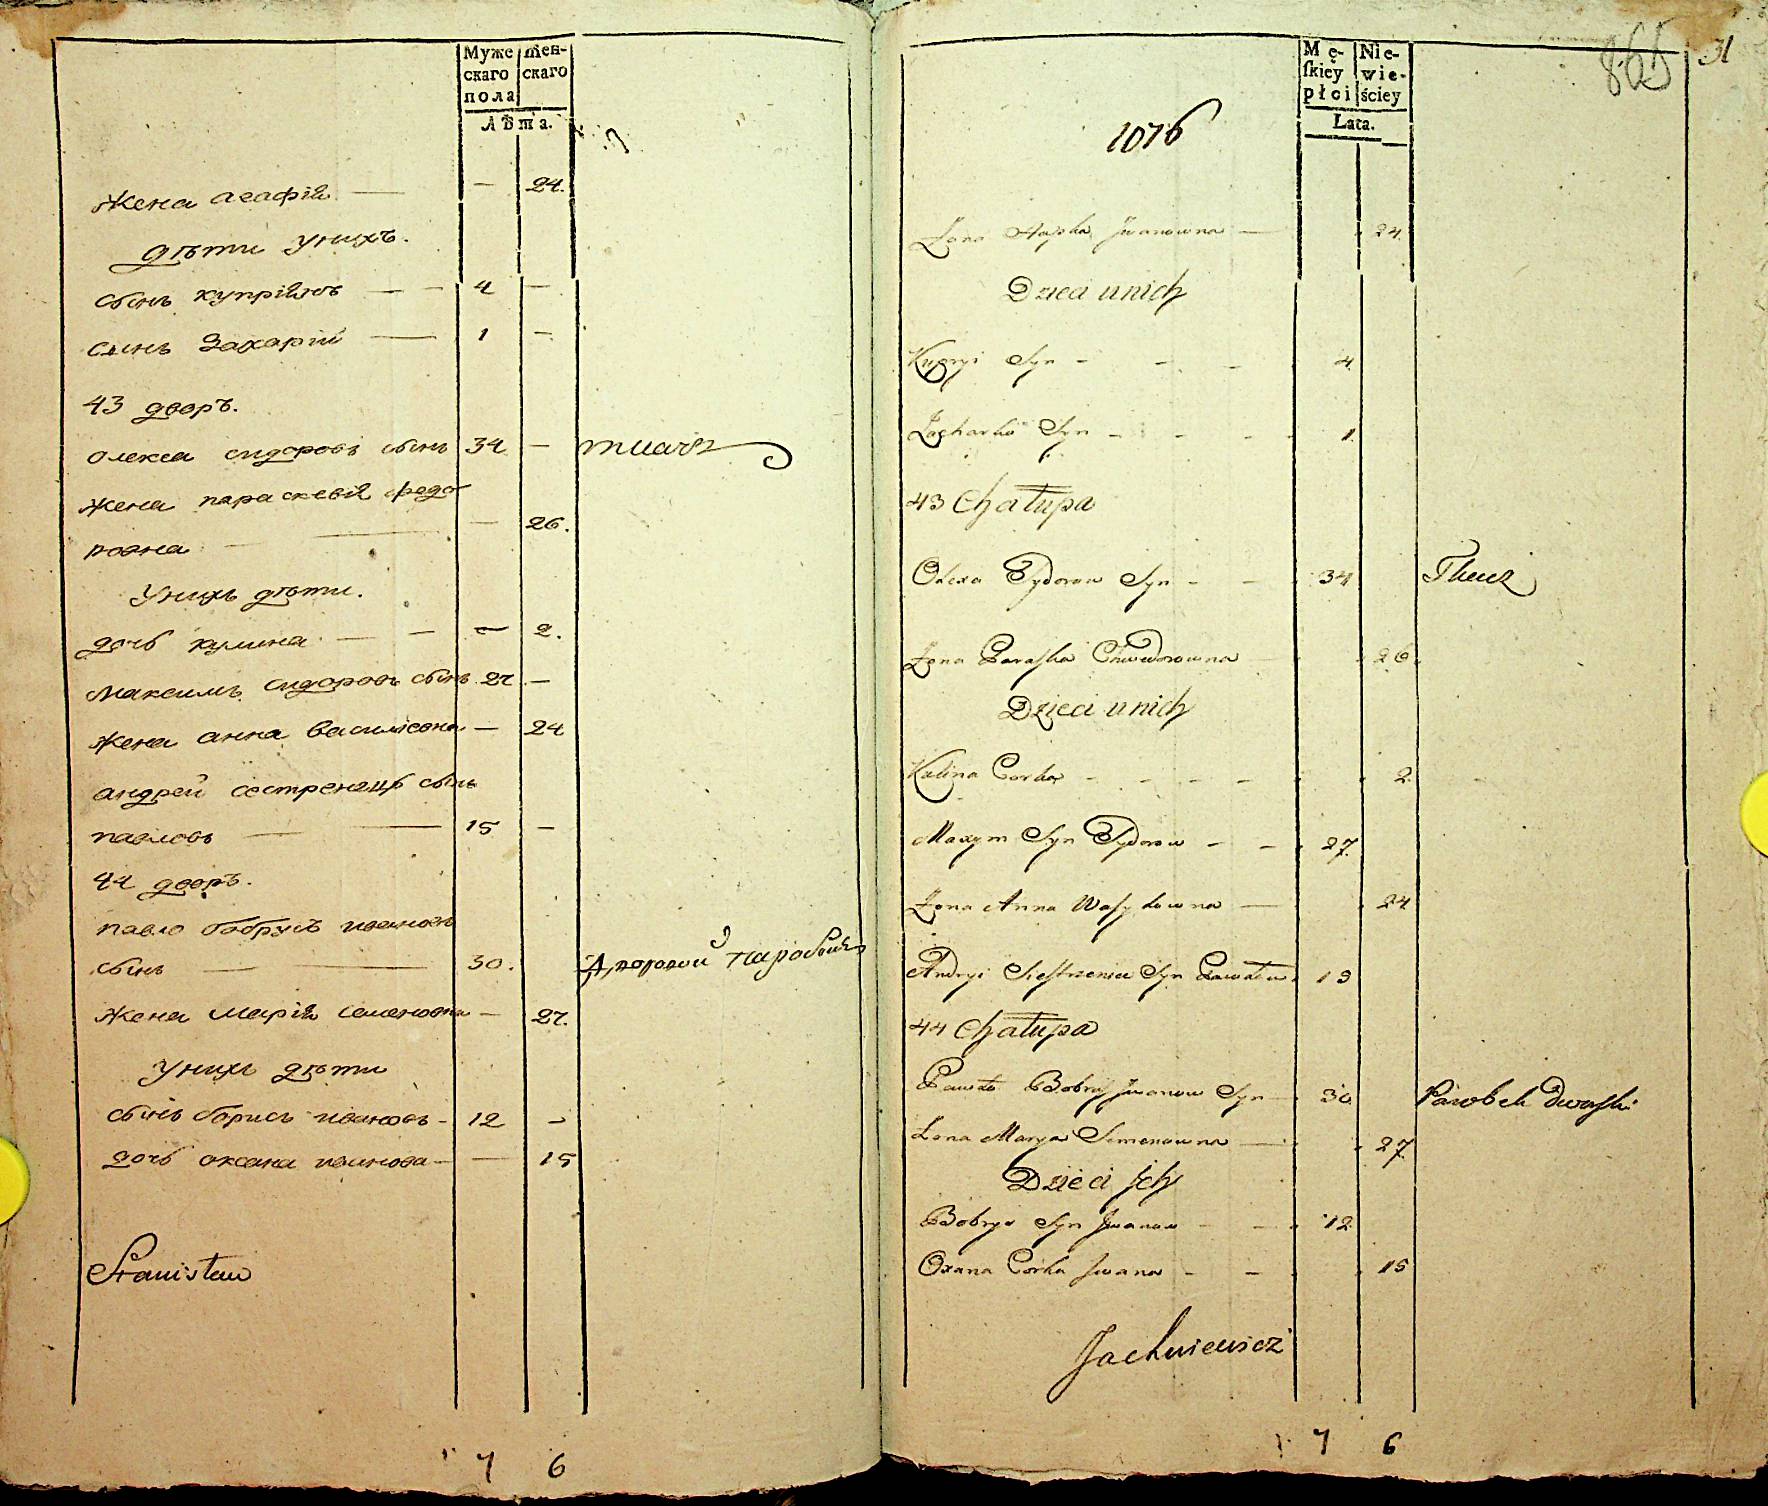 Муже
скаго
пола
жен-
скаго
Лѣта.
Жена агафія — — 24.
дѣти унихъ.
сынъ купріянъ — — 4 —
сынъ Захарій — 1 —
43 дворъ.
олекса сидоровъ сынъ 34 — ткачъ
жена параскевія федо
ровна — — 26.
Унихъ дѣти.
дочь кулина — — — 2.
максимъ сидоровъ сынъ 27 —
жена анна василіовна — 24
андрей сестренецъ сынъ
павловъ — — 15 —
44 дворъ.
павло бобрусь ивановъ
сынъ — — 30. Дворовой паробокъ
жена марія семеновна — 27.
Унихъ дѣти
сынъ борисъ ивановъ - 12 -
дочь оксана иванова — — 15
Stanisław
7 6
Mę-
ſkiey
płci
Nie-
wie-
ściey
Lata.
865
31
1076
Żona Hapka Jwanowna — 24.
Dzieci unich
Kupryi Syn - - - 4.
Zacharko Syn - - - - 1.
43 Chałupa
Olexa Sydorow Syn - - 34 Tkacz
Żona Paraſka Chwedorowna — 26.
Dzieci unich
Kalina Corka - - - - 2.
Maxym Syn Sydorow - - 27.
Żona Anna Waſylowna — 24
Andryi Sieſtrzeniec Syn Pawłow 15
44 Chałupa
Pawło Bobruś Jwanow Syn — 30 Parobek Dworſki
Żona Marya Semenowna — 27.
Dzieci Jch
Bobryś Syn Jwanow - - 12.
Oxana Corka Jwana - - 15
Jachniewicz
7 6